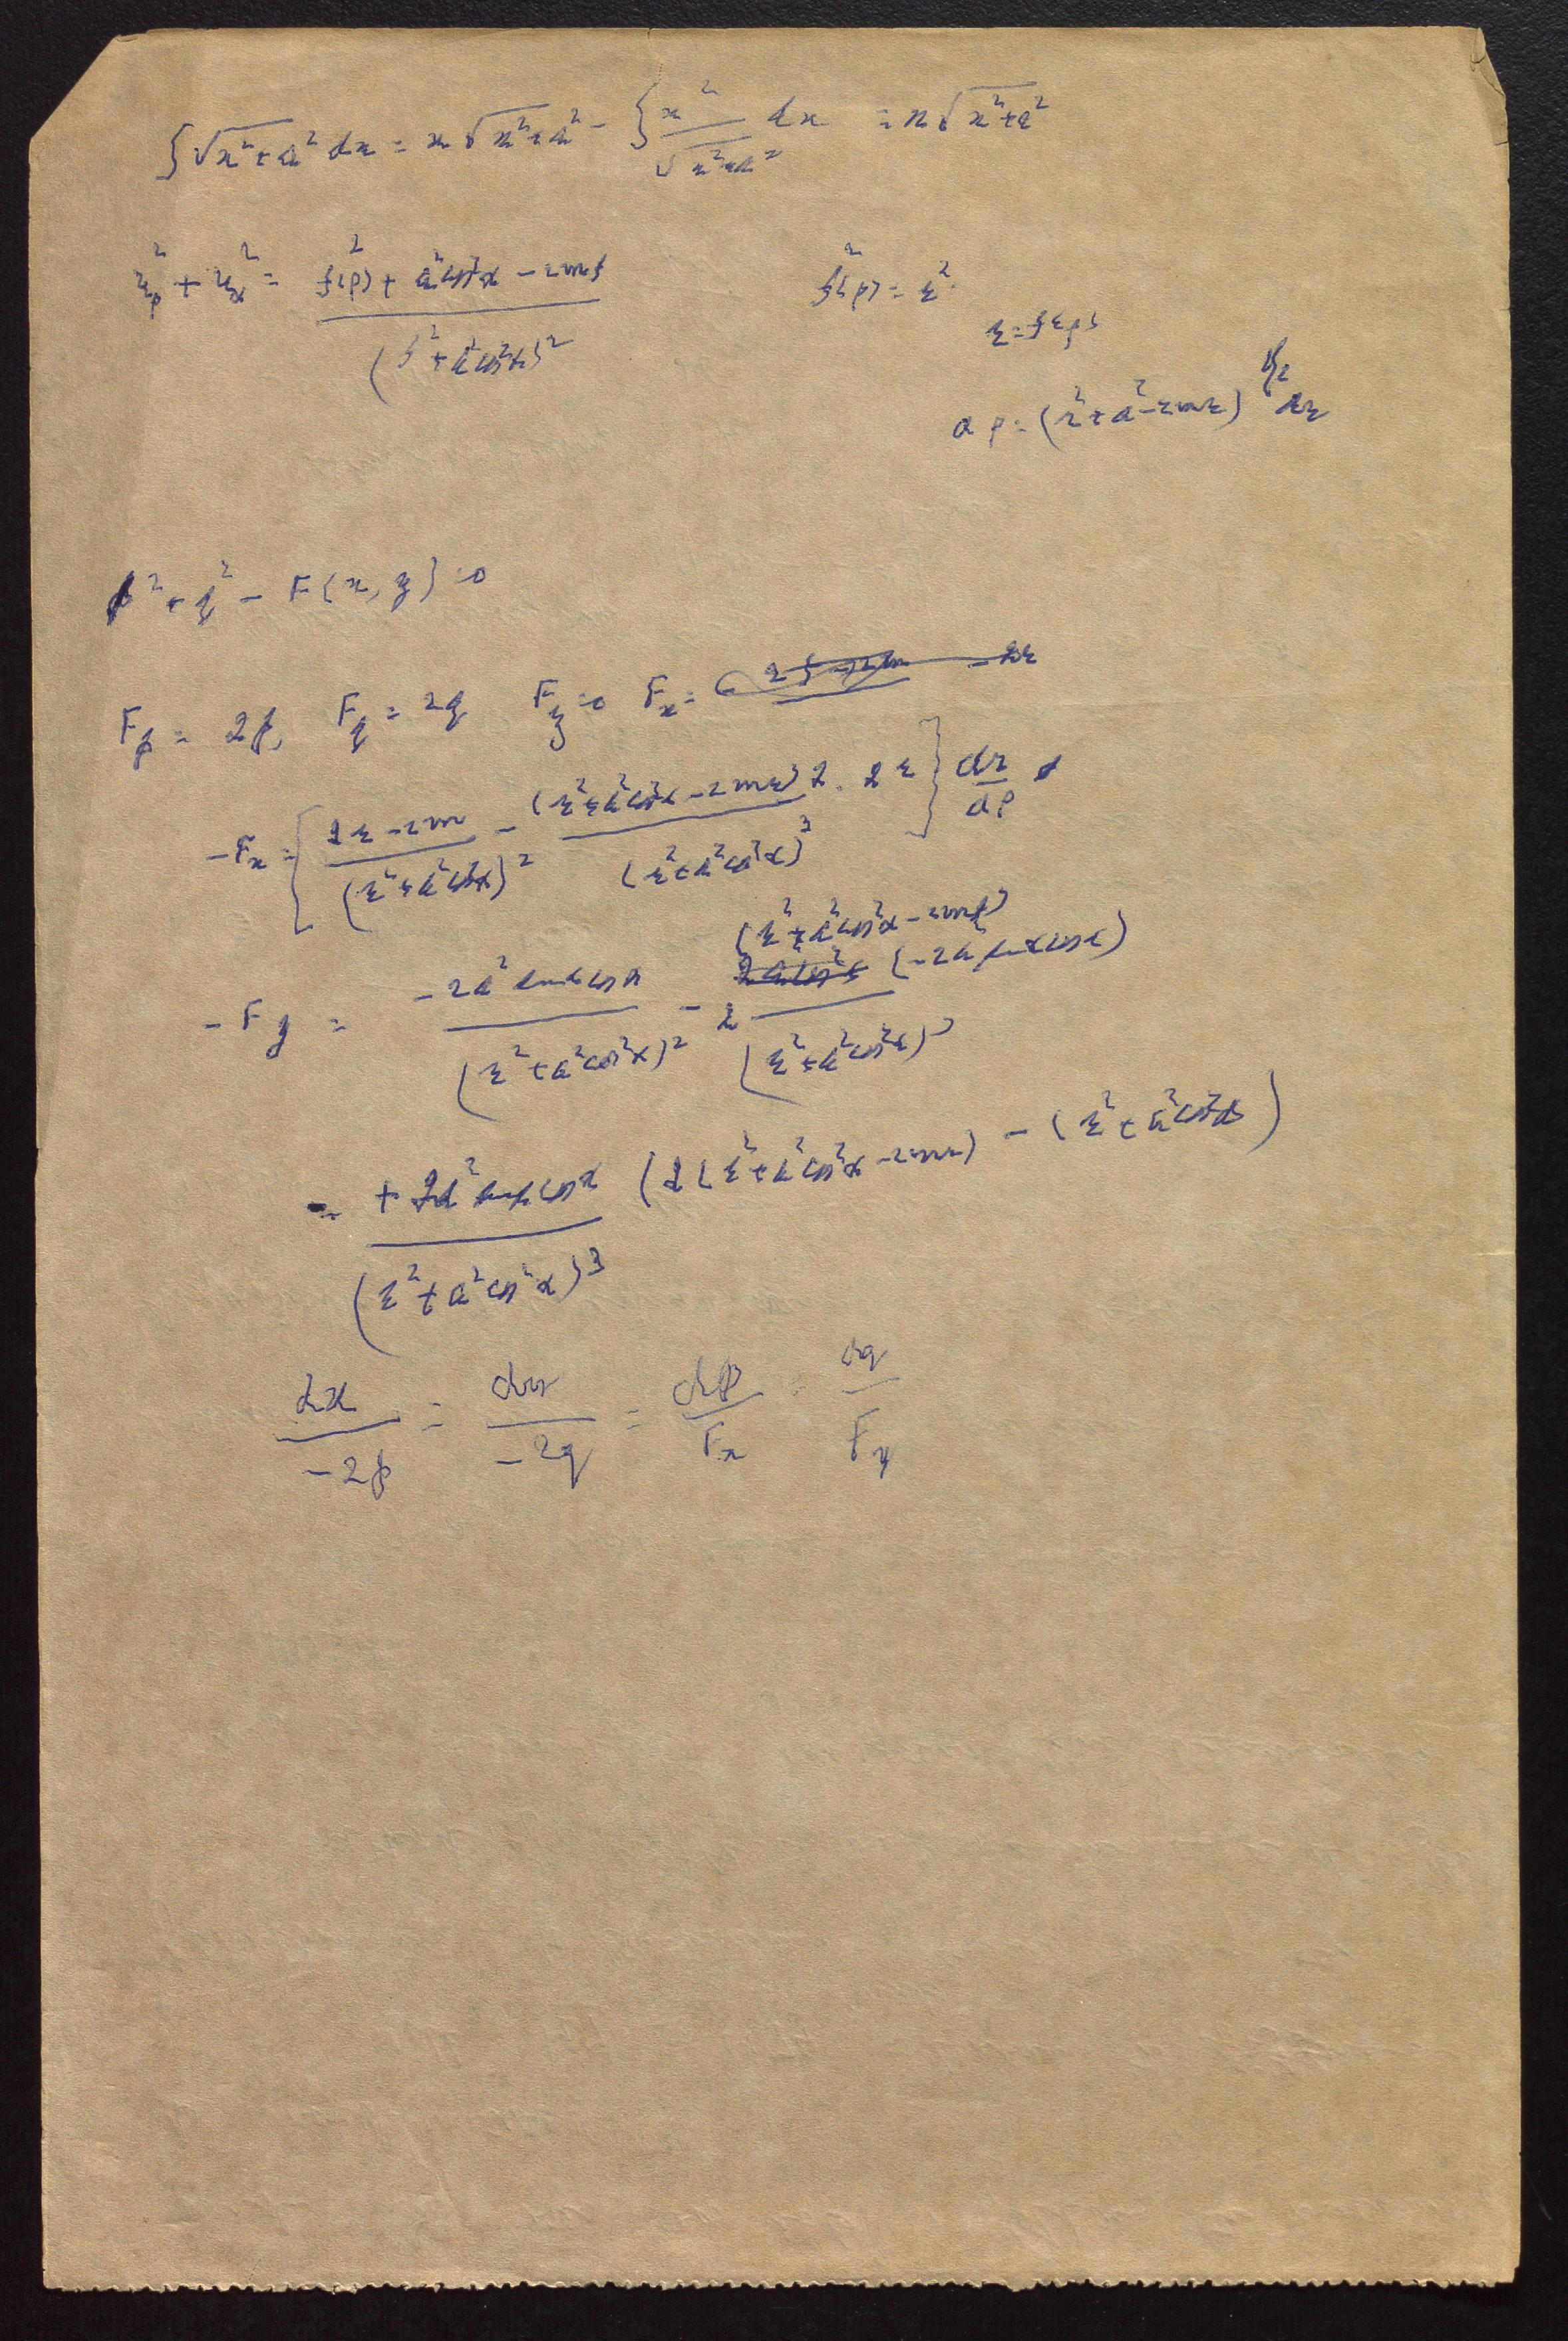 ∫√(x²+a²) dx = x√(x²+a²) − ∫ x²/√(x²+a²) dx = x√(x²+a²)
u_ρ² + u_α² = (f²(ρ) + a²cos²α − 2mf)/(f² + a²cos²α)²
f²(ρ) = r²
r = f(ρ)
dρ = (r² + a² − 2mr)^{1/2} dr
p² + q² − F(x, y) = 0
F_p = 2p, F_q = 2q F_z = 0 F_x =
−F_x = { (2r − 2m)/(r² + a²cos²α)² − (r² + a²cos²α − 2mr) 2 · 2r/(r² + a²cos²α)³ } dr/dρ
−F_y = −2a² sinα cosα/(r² + a²cos²α)² − 2 (r² + a²cos²α − 2mr)(−2a² sinα cosα)/(r² + a²cos²α)³
= + 2a² sinα cosα/(r² + a²cos²α)³ (2(r² + a²cos²α − 2mr) − (r² + a²cos²α))
dx/−2p = dy/−2q = dp/F_x = dq/F_y